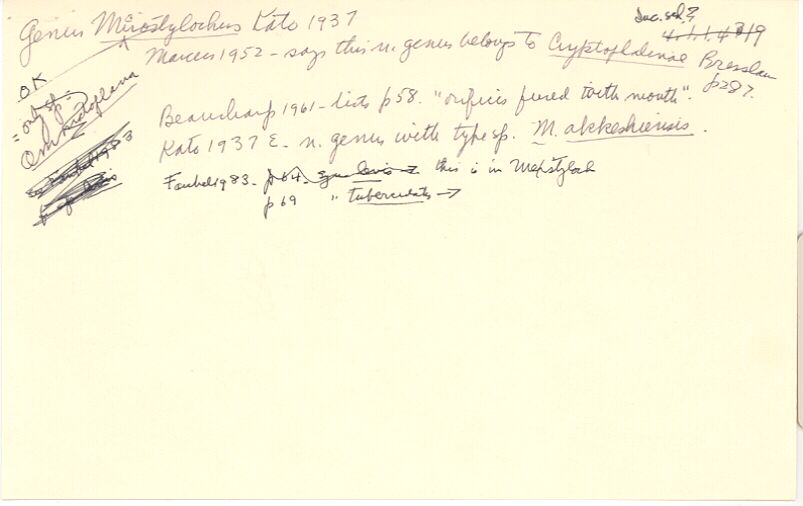 Genus Mirostylochus Kato 1937
Inc. sed?
4.1.1.4 3 19
Marcus 1952 - says this n. genus belongs to Cryptoplaninae Bresslau
p287.
OK
= only sp. =
Beauchamp 1961 - lists p58. "orifices fused with mouth".
Kato 1937 E - n. genus with type sp. M. akkeshiensis.
Faubel 1983 - p 64 this is in Mexistyloch
p 69 " tuberculatus →